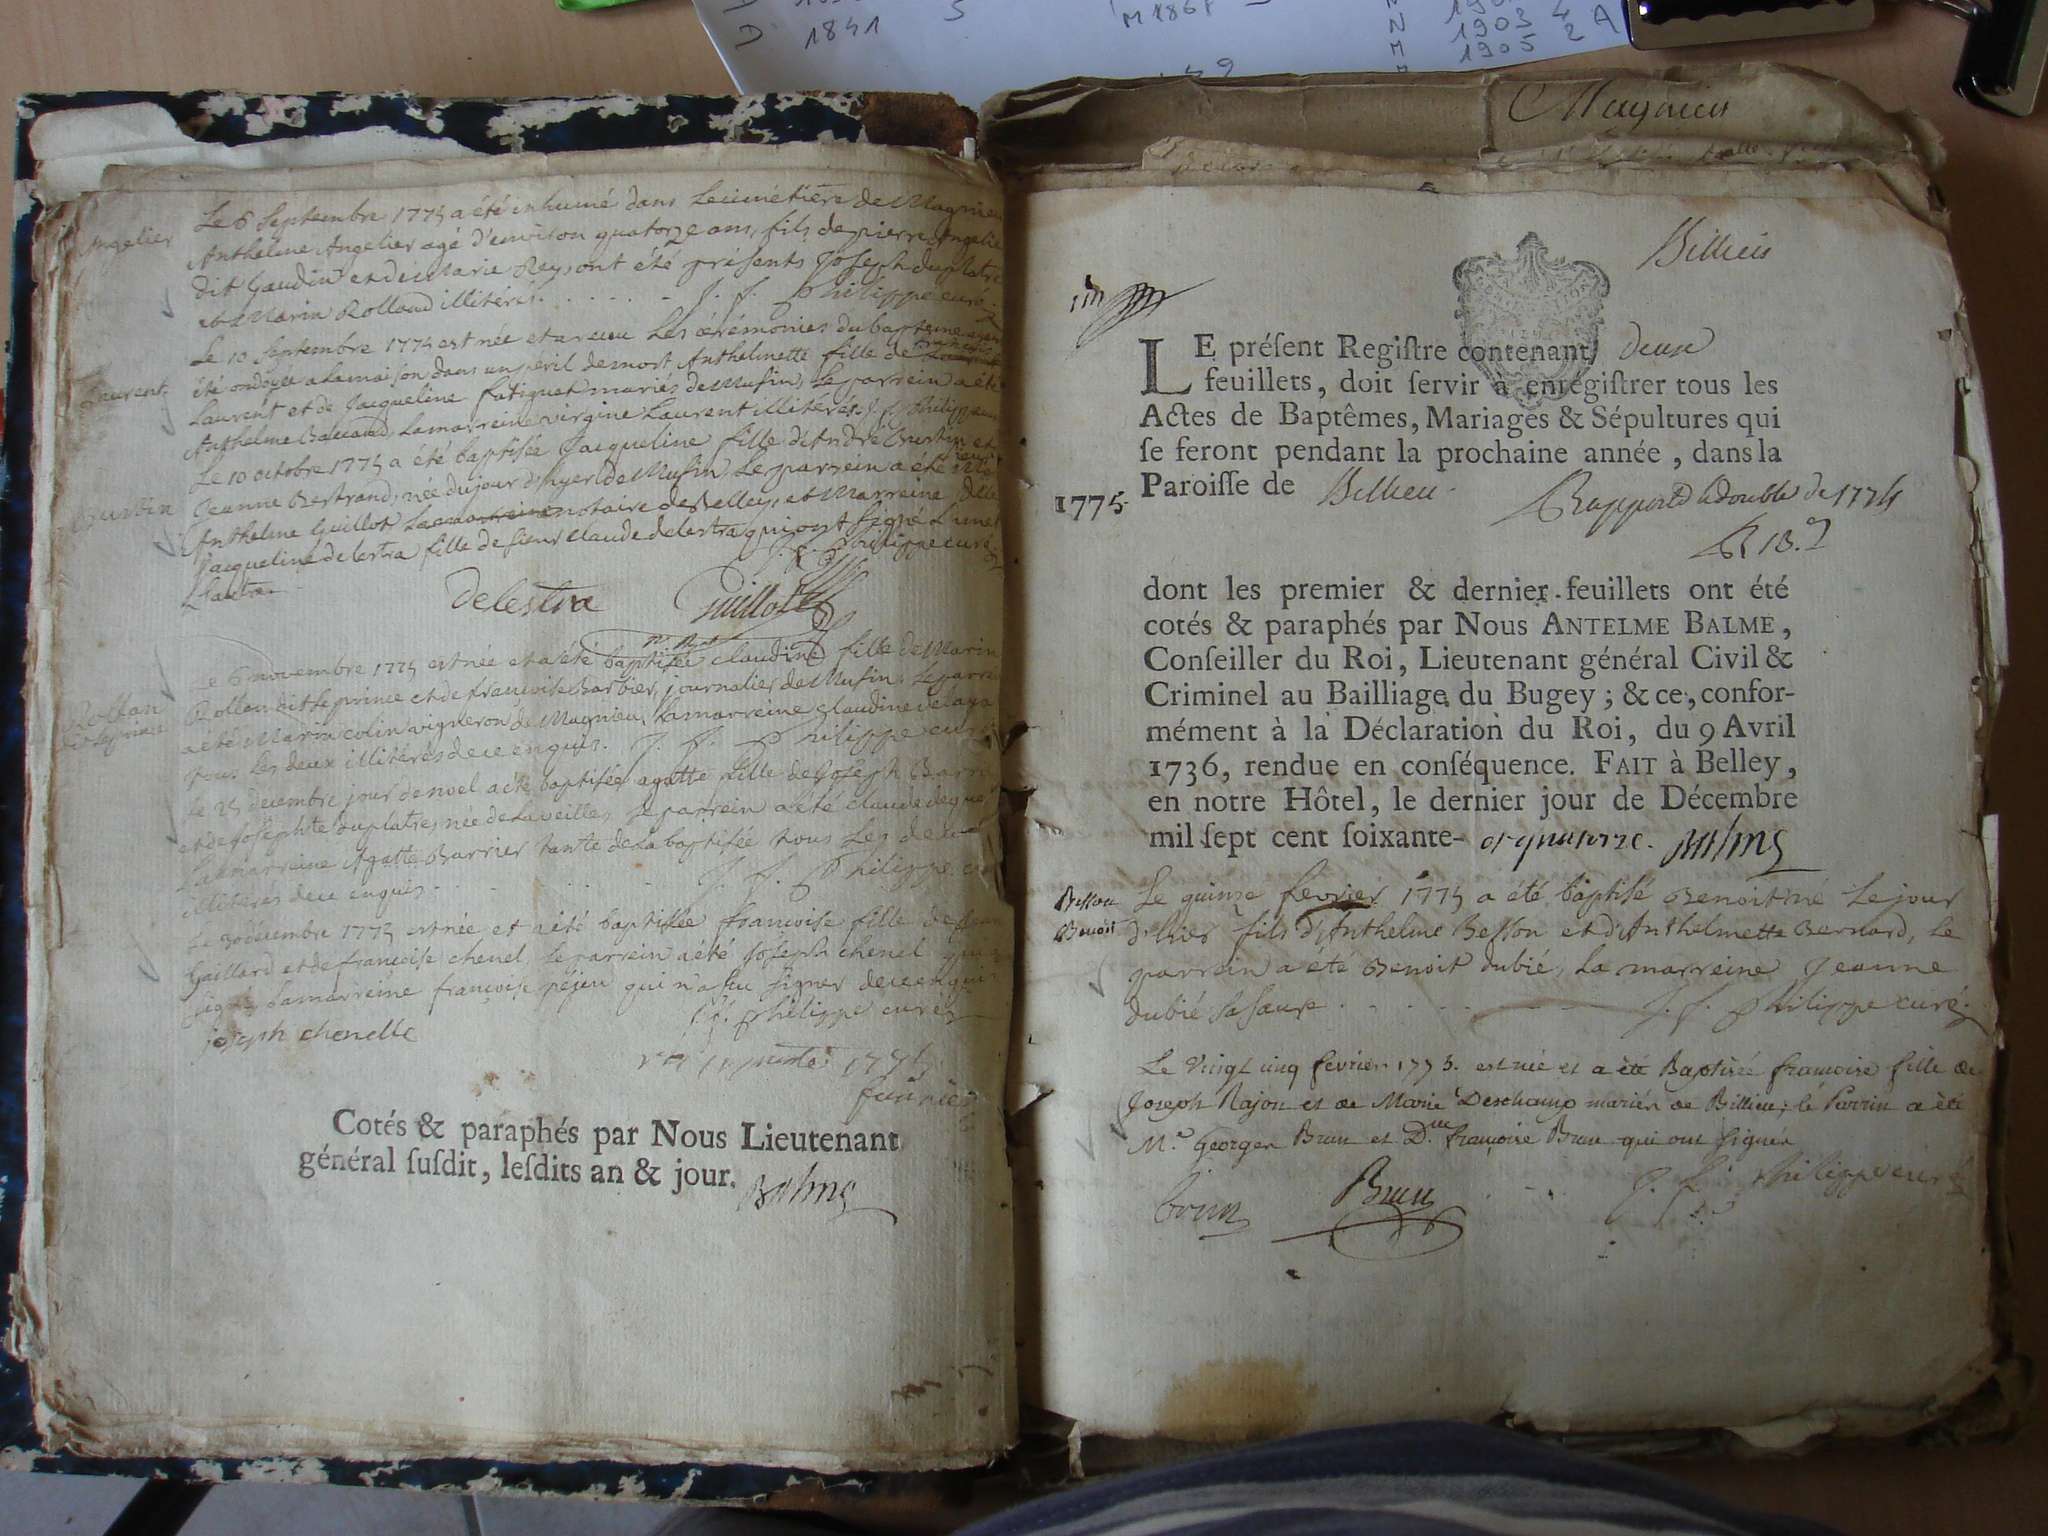 1841 5
M 1868
1903
1905 2 A
49
Magnieu
Angelier
Le 6 Septembre 1775 a été inhumé dans Le cimétière de Magnieu
Anthelme Angelier agé d'environ quatorze ans, fils de pierre Angelie
dit Gaudin et de Marie Rey, ont été présents Joseph duplatre
et Marin Rolland illitérés. J. f. Philippe curé.
Laurent.
Le 10 Septembre 1775 est née et a recu Les cérémonies du bapteme ayant
été ondoyée a La maison dans un péril de mort Anthelmette fille de francois
Laurent et de Jacqueline fatiguet mariés de Musin, Le parrein a été
Anthelme Lamarreine virgine Laurent illitérés. J. f. Philippe curé
Burtin
Le 10 octobre 1775 a été baptisée Jacqueline fille d'André Burtin et
Jeanne Bertrand, née du jour d'hyer de Musin, Le parrein a été
Anthelme Guillot notaire de Belley, et Marreine delle
Jacqueline delestra fille de sieur Claude delestra qui ont signé L'un et
L'autre. J. f. Philippe curé
Delestra Guillot
Rollan
dit Leprince
Le 6 novembre 1775 est née et a été baptisée claudine fille de Marin
Rollan dit Le prince et de francoise Barbier, journalier de Musin, Le parrein
a été Marin colin vigneron de Magnieu, La marreine claudine
tous Les deux illitérés de ce enquis. J. f. Philippe curé
Le 25 decembre jour de noel a été baptisée agatte fille de Joseph
et de Josephte duplatre, née de La veille, Le parrein a été claude
La marreine Agatte Barrier tante de La baptisée tous Les deux
illitérés de ce enquis. J. f. Philippe
Le 30 décembre 1775 est née et a été baptisée francoise fille de
Gaillard et de francoise chenel, Le parrein a été Joseph chenel qui a
signé, La marreine françoise pejeu qui n'a su signer de ce enquis
J. f. Philippe curé
joseph chenelle
1775
Cotés & paraphés par Nous Lieutenant
général susdit, lesdits an & jour. Balme
Billieu
LE présent Registre contenant deux
feuillets, doit servir à enrégistrer tous les
Actes de Baptêmes, Mariages & Sépultures qui
se feront pendant la prochaine année, dans la
1775. Paroisse de Billieu. Rapporté le double de 1774
dont les premier & dernier feuillets ont été
cotés & paraphés par Nous ANTELME BALME,
Conseiller du Roi, Lieutenant général Civil &
Criminel au Bailliage du Bugey ; & ce, confor-
mément à la Déclaration du Roi, du 9 Avril
1736, rendue en conséquence. FAIT à Belley,
en notre Hôtel, le dernier jour de Décembre
mil sept cent soixante- et quatorze. Balme
Besson
Benoit
Le quinze février 1775 a été baptisé Benoit né Le jour
d'hier fils d'Anthelme Besson et d'Anthelmette Bernard, Le
parrein a été Benoit dubié, La marreine Jeanne
dubié sa sœur J. f. Philippe curé.
Le vingt cinq fevrier 1775. est née et a été Baptisée francoise fille de
Joseph Rajon et de Marie Deschamp mariés de Billieu; le Parrin a été
Mr. Georges Brun et Dlle francoise Brun qui ont signés
brun Brun J. f. Philippe curé